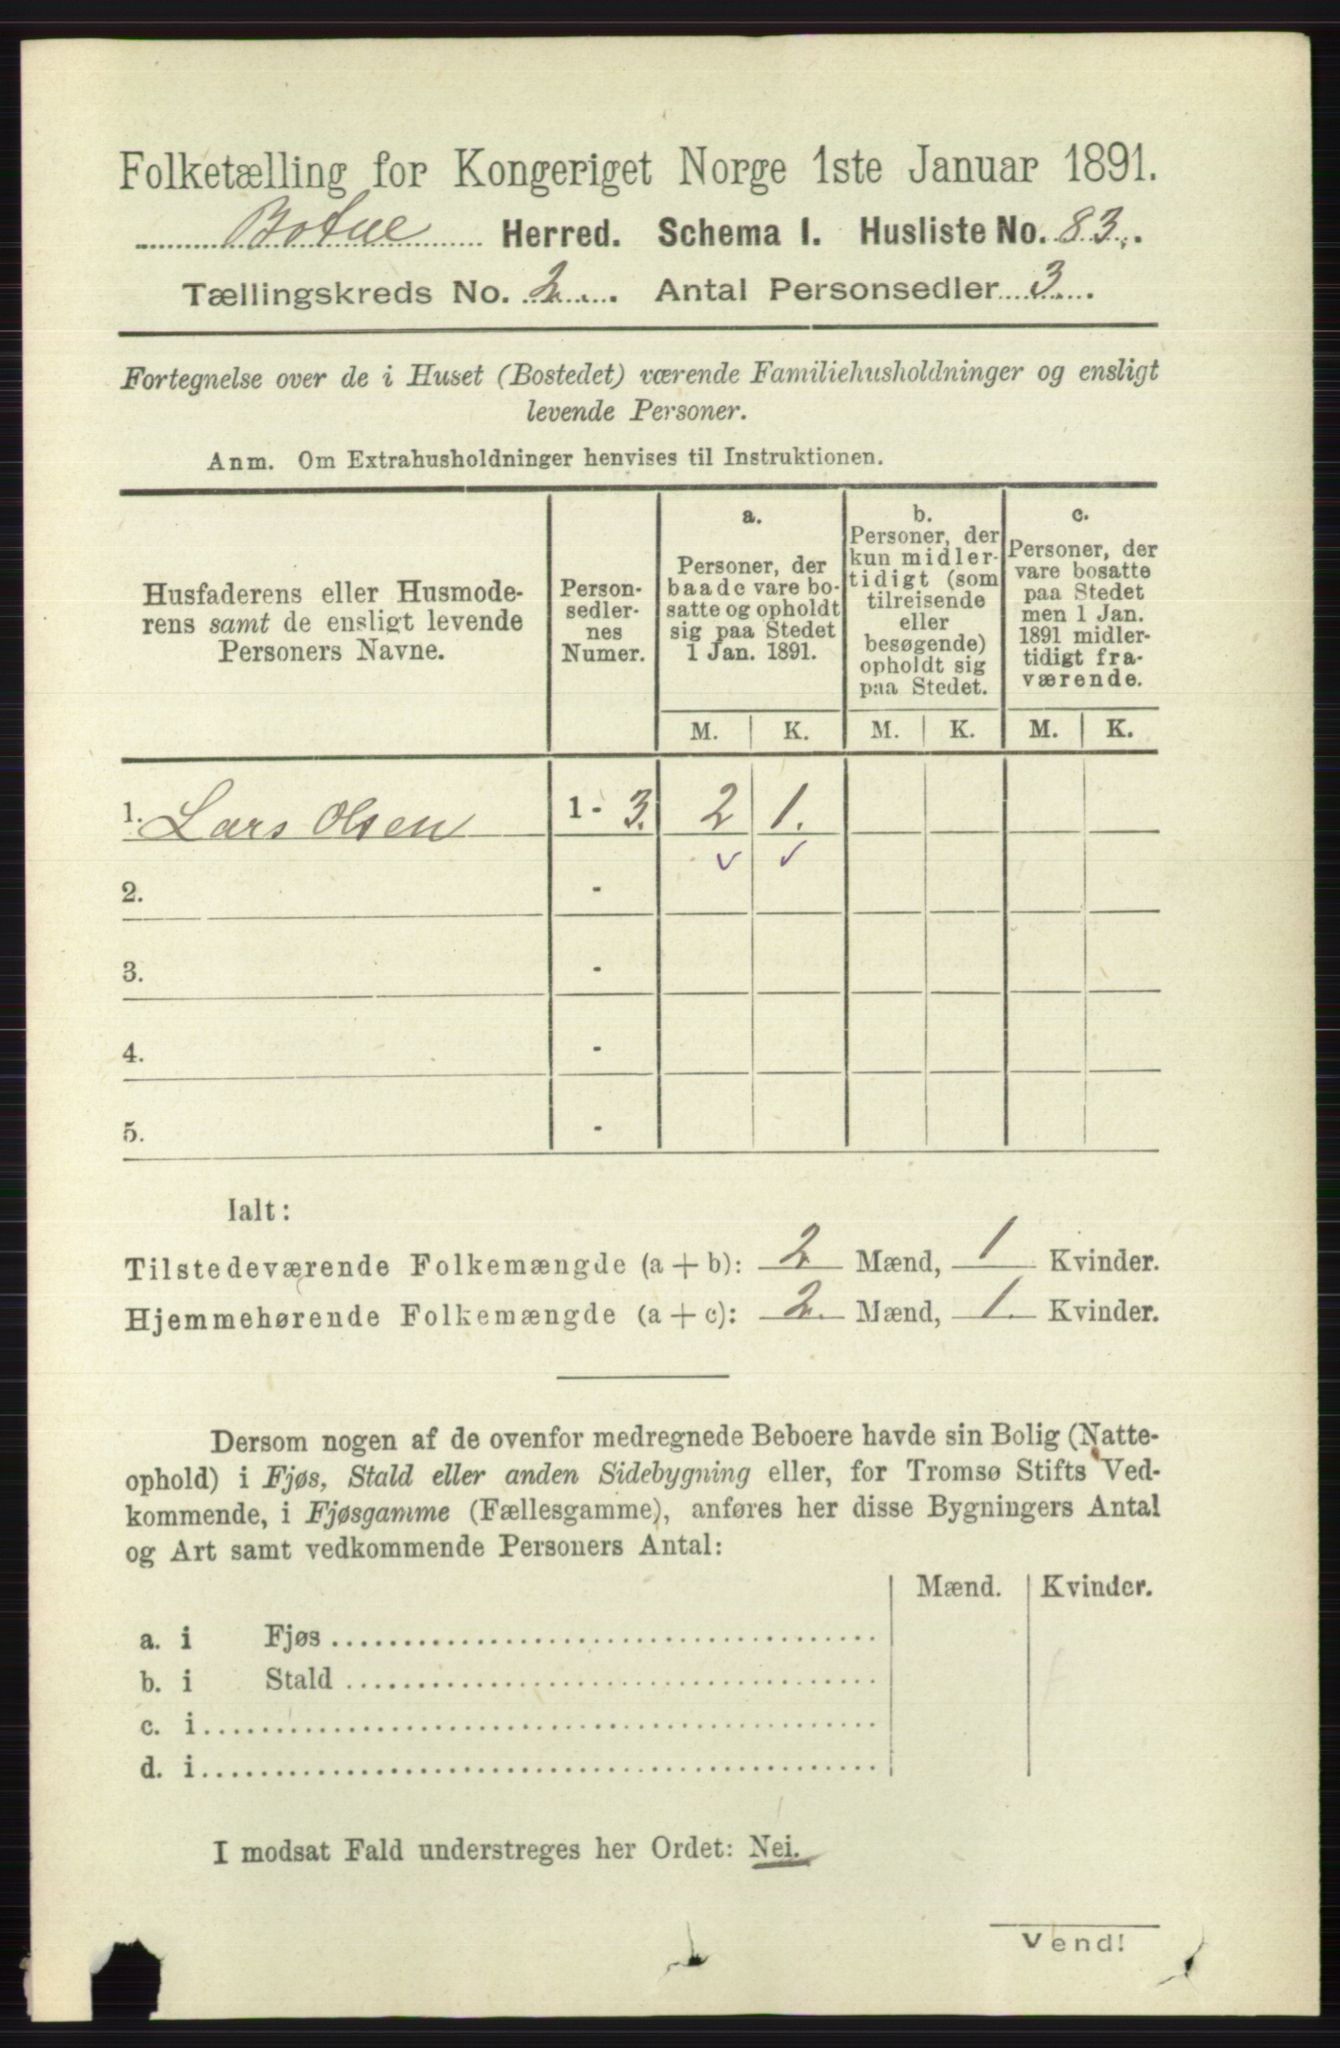 Folketælling for Kongeriget Norge 1ste Januar 1891.
Botne Herred. Schema I. Husliste No. 83.
Tællingskreds No. 2. Antal Personsedler 3.
Fortegnelse over de i Huset (Bostedet) værende Familiehusholdninger og ensligt
levende Personer.
Anm. Om Extrahusholdninger henvises til Instruktionen.
Husfaderens eller Husmode-
rens samt de ensligt levende
Personers Navne.
Person-
sedler-
nes
Numer.
a.
Personer, der
baade vare bo-
satte og opholdt
sig paa Stedet
1 Jan. 1891.
b.
Personer, der
kun midler-
tidigt (som
tilreisende
eller
besøgende)
opholdt sig
paa Stedet.
c.
Personer, der
vare bosatte
paa Stedet
men 1 Jan.
1891 midler-
tidigt fra-
værende.
M. K. M. K. M. K.
1. Lars Olsen 1 - 3. 2 1.
2. -
3. -
4. -
5. -
Ialt:
Tilstedeværende Folkemængde (a + b): 2 Mænd, 1 Kvinder.
Hjemmehørende Folkemængde (a + c): 2. Mænd, 1. Kvinder.
Dersom nogen af de ovenfor medregnede Beboere havde sin Bolig (Natte-
ophold) i Fjøs, Stald eller anden Sidebygning eller, for Tromsø Stifts Ved-
kommende, i Fjøsgamme (Fællesgamme), anføres her disse Bygningers Antal
og Art samt vedkommende Personers Antal:
Mænd. Kvinder.
a. i Fjøs
b. i Stald
c. i
d. i
I modsat Fald understreges her Ordet: Nei.
Vend!